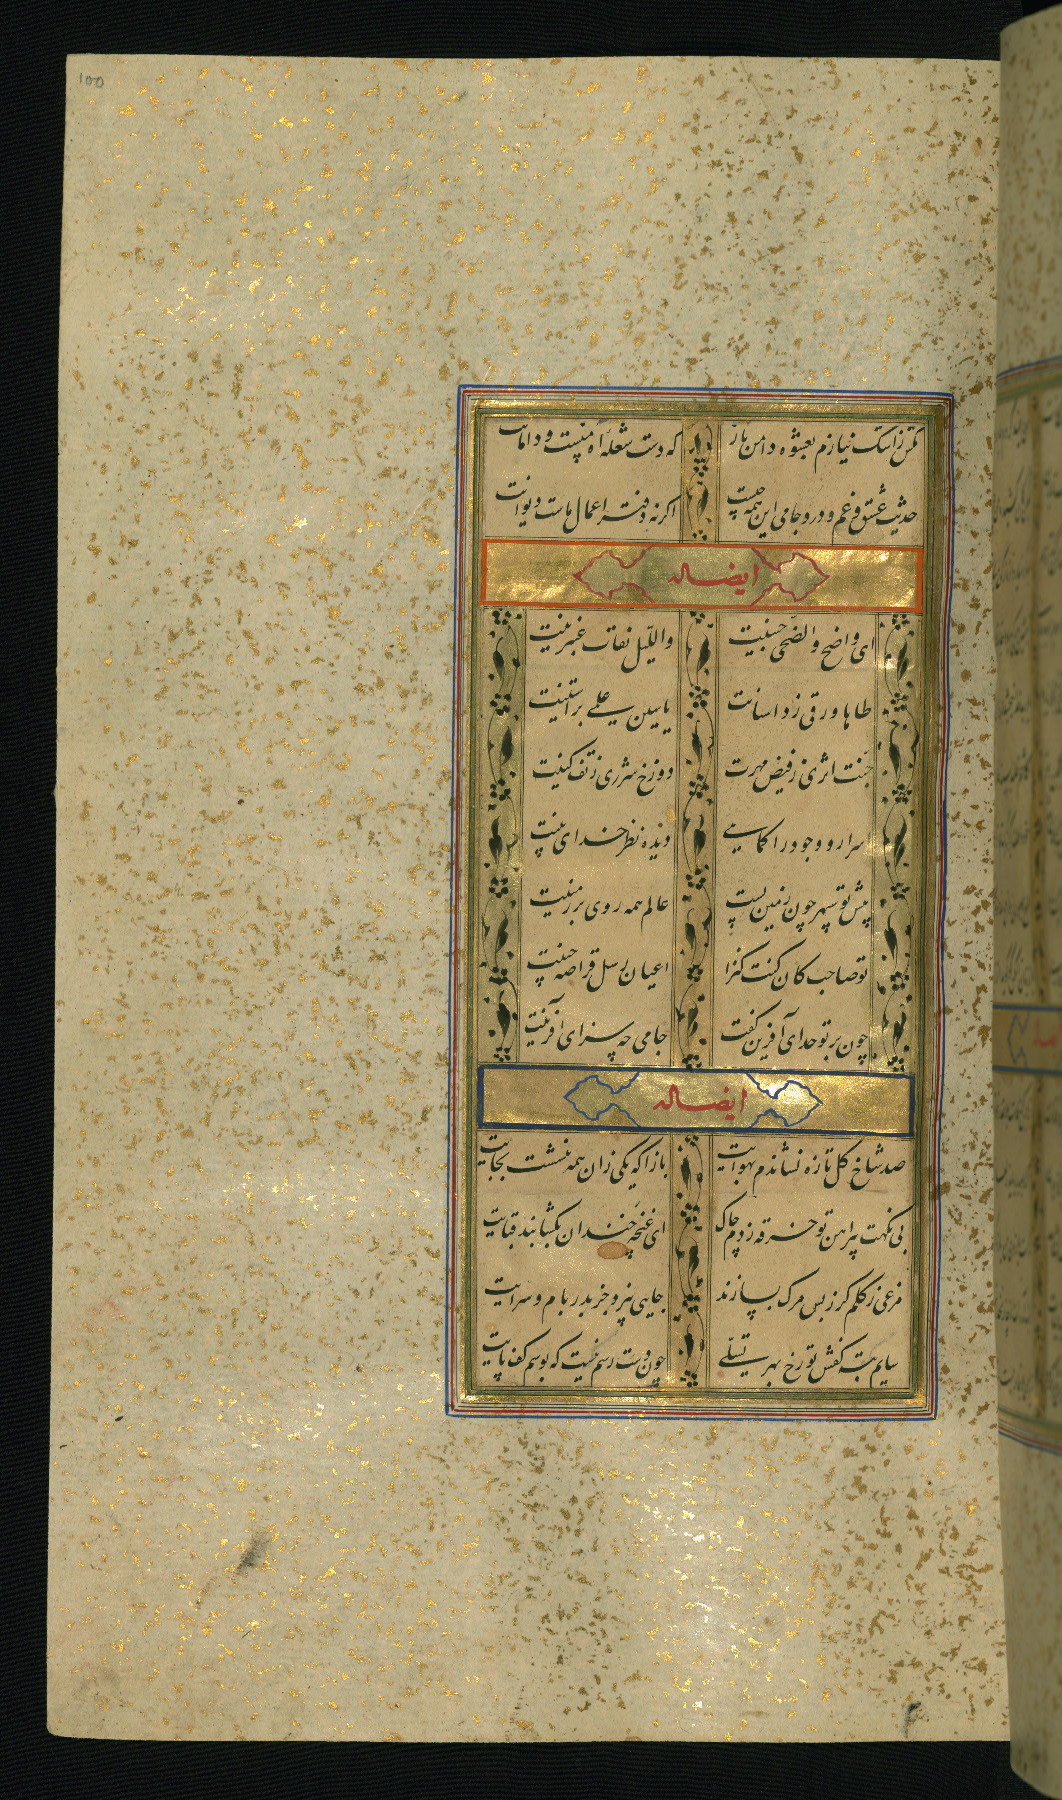 ۱۵۵
مکن ز اشک نیازم بعشوه دامن باز که دست شعله آه منست و دامانت
حدیث عشق و غم و درد جامی این همه چیست اگر نه دفتر اعمال ماست دیوانت
ایضاله
ای واضح والضحی جبینت واللیل نقاب عنبرینت
طاها ورقی ز داستانت یاسین علمی بر آستینت
جنت اثری ز فیض مهرت دوزخ شرری ز تف کینت
اسرار وجود را کماهی دیده نظر خدای بینت
پیش تو سپهر چون زمین پست عالم همه روی بر زمینت
تو صاحب کان کنت کنزا اعیان رسل قراضه چینت
چون بر تو خدای آفرین گفت جامی چه سزای آفرینت
ایضاله
صد شاخ گل تازه نشاندم بهوایت باز آ که یکی زان همه ننشست بجایت
بی نکهت پیراهن تو خرقه زدم چاک ای غنچه خندان بگشا بند قبایت
مرغی ز گلم گر ز پس مرگ بسازند جایی نپرد جز بدر بام و سرایت
سایم بته کفش تو رخ بهر تسلی چون دست رسم نیست که بوسم کف پایت